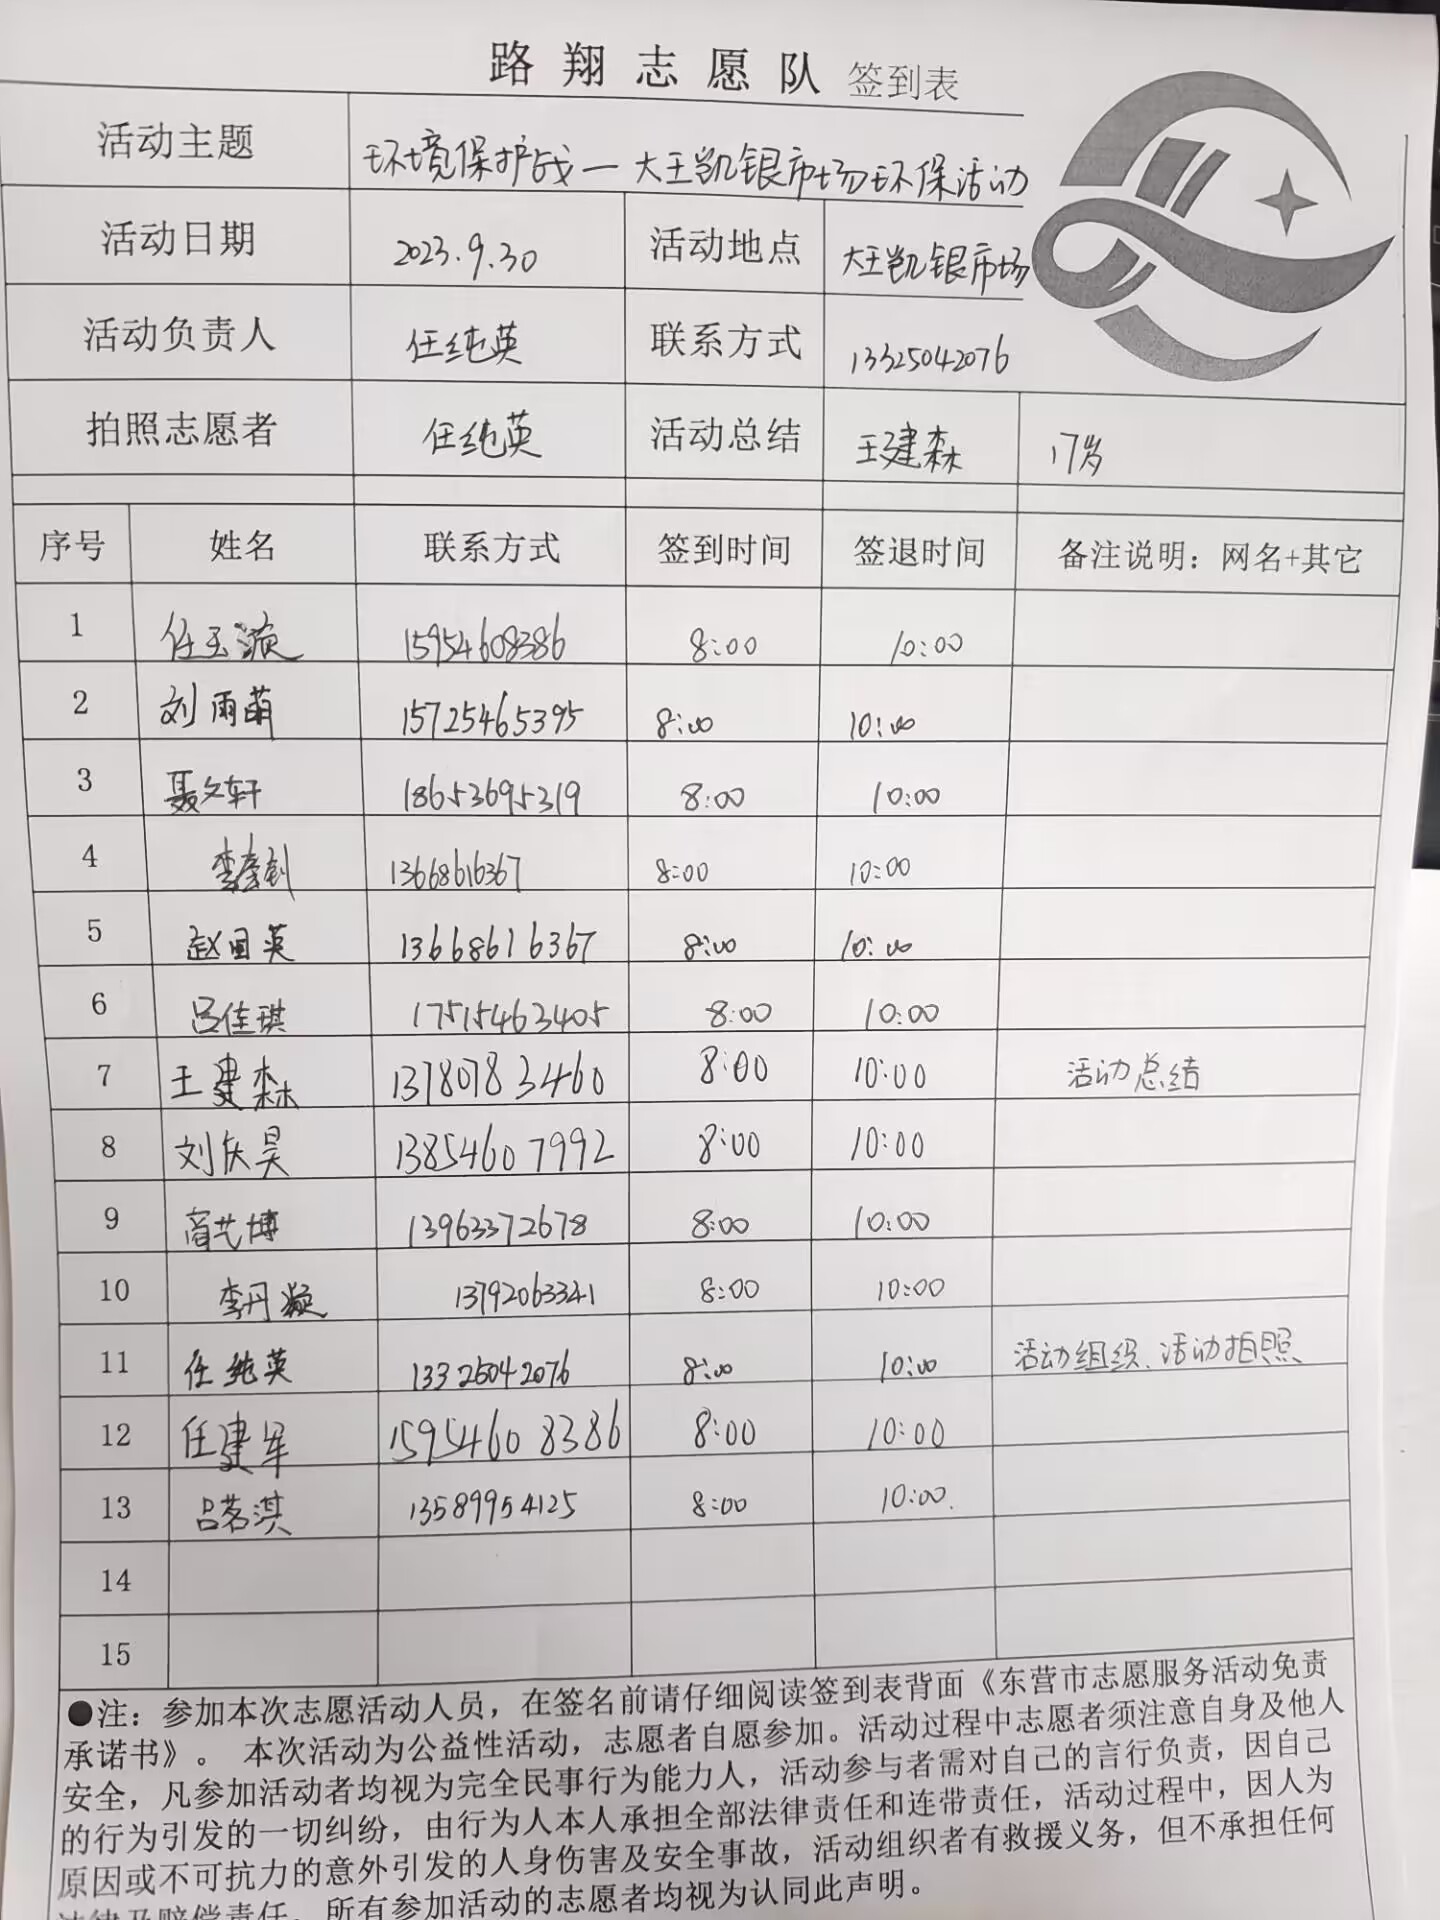 路翔志愿队 签到表
活动主题 环境保护战一大王凯银市场环保活动
活动日期 2023.9.30 活动地点 大王凯银市场
活动负责人 任纯英 联系方式 13325042076
拍照志愿者 任纯英 活动总结 王建森 17岁
序号 姓名 联系方式 签到时间 签退时间 备注说明：网名+其它
1 任玉 15954608386 8:00 10:00
2 刘雨萌 15725465395 8:00 10:00
3 聂文轩 18653695319 8:00 10:00
4 李奎剑 13668616367 8:00 10:00
5 赵国英 13668616367 8:00 10:00
6 吕佳琪 17515463405 8:00 10:00
7 王建森 13780783460 8:00 10:00 活动总结
8 刘庆昊 13854607992 8:00 10:00
9 商艺博 13963372678 8:00 10:00
10 李丹凝 13792063341 8:00 10:00
11 任纯英 13325042076 8:00 10:00 活动组织、活动拍照
12 任建军 15954608386 8:00 10:00
13 吕茗淇 13589954125 8:00 10:00.
14
15
●注：参加本次志愿活动人员，在签名前请仔细阅读签到表背面《东营市志愿服务活动免责
承诺书》。 本次活动为公益性活动，志愿者自愿参加。活动过程中志愿者须注意自身及他人
安全，凡参加活动者均视为完全民事行为能力人，活动参与者需对自己的言行负责，因自己
的行为引发的一切纠纷，由行为人本人承担全部法律责任和连带责任，活动过程中，因人为
原因或不可抗力的意外引发的人身伤害及安全事故，活动组织者有救援义务，但不承担任何
法律及赔偿责任。所有参加活动的志愿者均视为认同此声明。